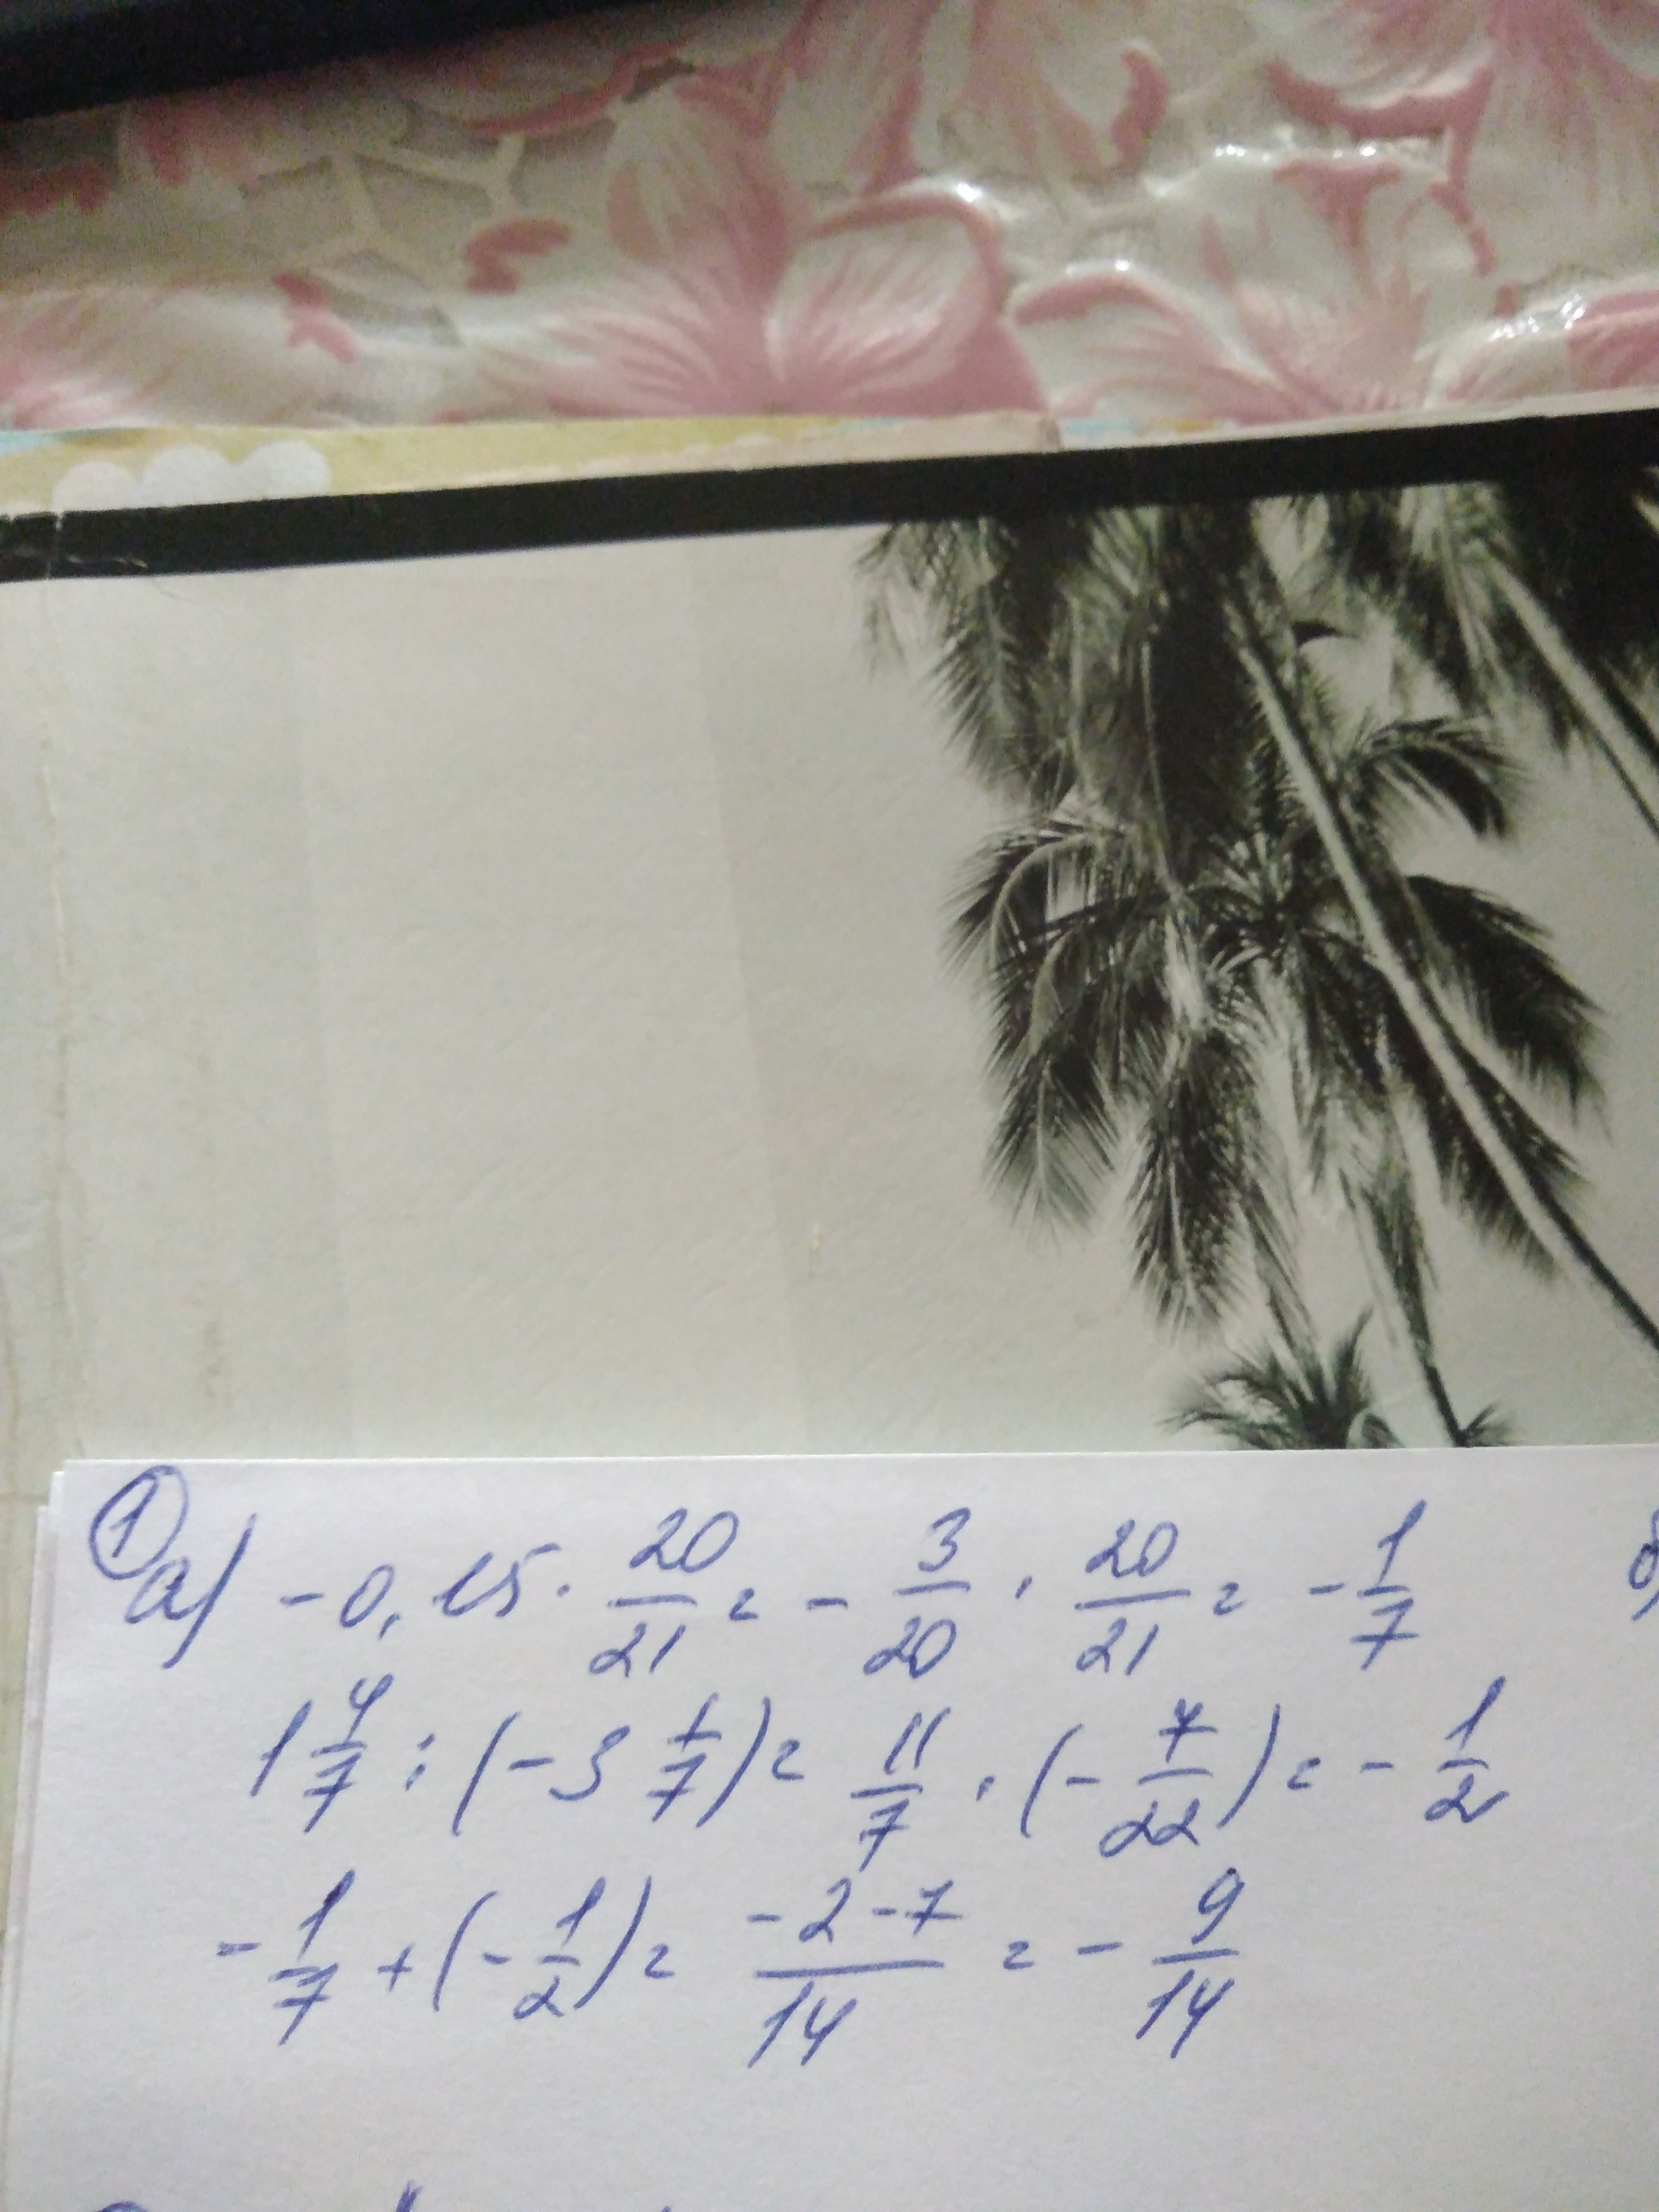 ①
а) -0,15 · 20/21 = - 3/20 · 20/21 = - 1/7 б)
1 4/7 : (-3 1/7) = 11/7 · (- 7/22) = - 1/2
- 1/7 + (- 1/2) = -2-7/14 = - 9/14